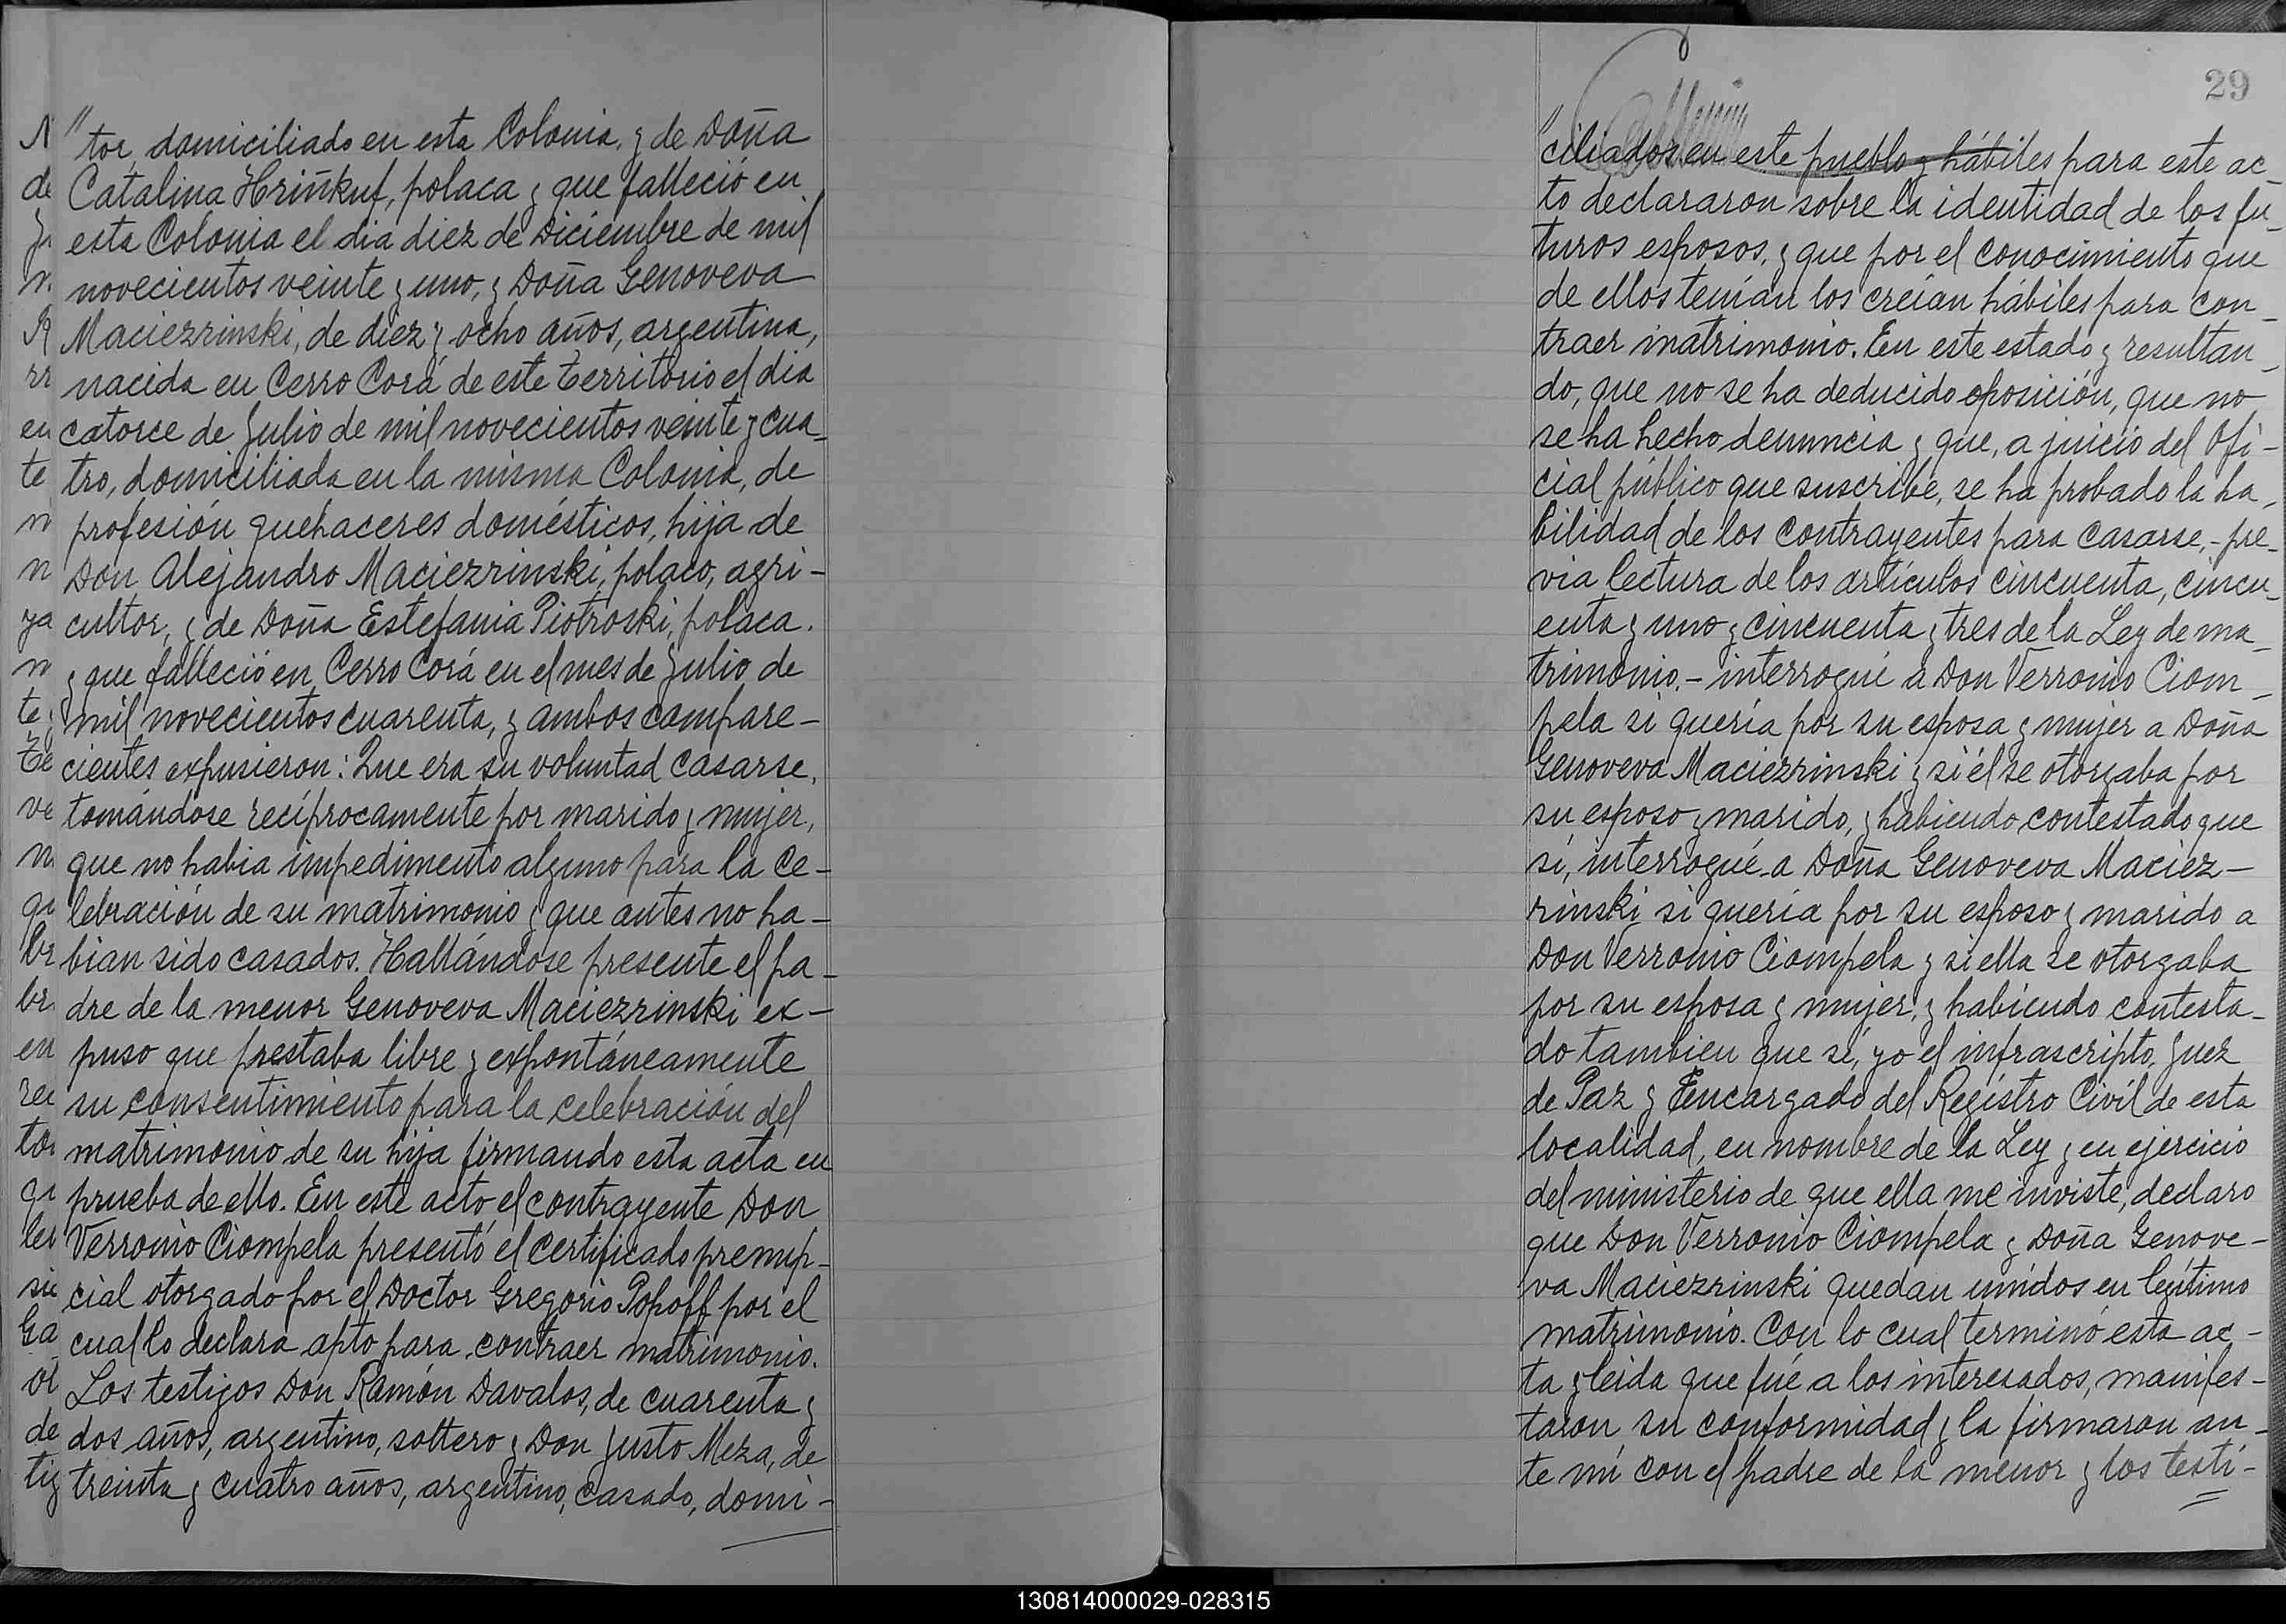 "tor, domiciliado en esta Colonia, y de Doña
Catalina Hriñkuf, polaca y que falleció en
esta Colonia el dia diez de Diciembre de mil
novecientos veinte y uno, y Doña Genoveva
Maciezrinski, de diez y ocho años, argentina,
nacida en Cerro Corá de este territorio el dia
catorce de Julio de mil novecientos veinte y cua-
tro, domiciliada en la misma Colonia, de
profesión quehaceres domésticos, hija de
Don Alejandro Maciezrinski, polaco, agri-
cultor, y de Doña Estefania Piotroski, polaca.
y que falleció en Cerro Corá en el mes de Julio de
mil novecientos cuarenta, y ambos compare-
cientes expusieron: Que era su voluntad casarse,
tomándose recíprocamente por marido y mujer,
que no habia impedimento alguno para la ce-
lebración de su matrimonio y que antes no ha-
bian sido casados. Hallándose presente el pa-
dre de la menor Genoveva Maciezrinski ex-
puso que prestaba libre y expontáneamente
su consentimiento para la celebración del
matrimonio de su hija firmando esta acta en
prueba de ello. En este acto el contrayente Don
Verronio Ciompela presentó el certificado prenup-
cial otorgado por el Doctor Gregorio Popoff por el
cual lo declara apto para contraer matrimonio.
Los testigos Don Ramón Davalos, de cuarenta y
dos años, argentino, soltero y Don Justo Meza, de
treinta y cuatro años, argentino, casado, domi-
29
"ciliados en este pueblo y hábiles para este ac-
to declararon sobre la identidad de los fu-
turos esposos, y que por el conocimiento que
de ellos tenían los creían hábiles para con-
traer matrimonio. En este estado y resultan-
do, que no se ha deducido oposición, que no
se ha hecho denuncia y que, a juicio del Ofi-
cial público que suscribe, se ha probado la ha-
bilidad de los contrayentes para casarse,- pre-
via lectura de los artículos cincuenta, cincu-
enta y uno y cincuenta y tres de la Ley de ma-
trimonio.- interrogué a Don Verronio Ciom-
pela si quería por su esposa y mujer a Doña
Genoveva Maciezrinski y si él se otorgaba por
su esposo y marido, y habiendo contestado que
sí, interrogué a Doña Genoveva Maciez-
rinski si quería por su esposo y marido a
Don Verronio Ciompela y si ella se otorgaba
por su esposa y mujer, y habiendo contesta-
do tambien que sí, yo el infrascripto, Juez
de Paz y Encargado del Registro Civil de esta
localidad, en nombre de la Ley y en ejercicio
del ministerio de que ella me inviste, declaro
que Don Verronio Ciompela y Doña Genove-
va Maciezrinski quedan unidos en legítimo
matrimonio. Con lo cual terminó esta ac-
ta y leída que fué a los interesados, manifes-
taron su conformidad y la firmaron an-
te mí con el padre de la menor y los testi-
130814000029-028315